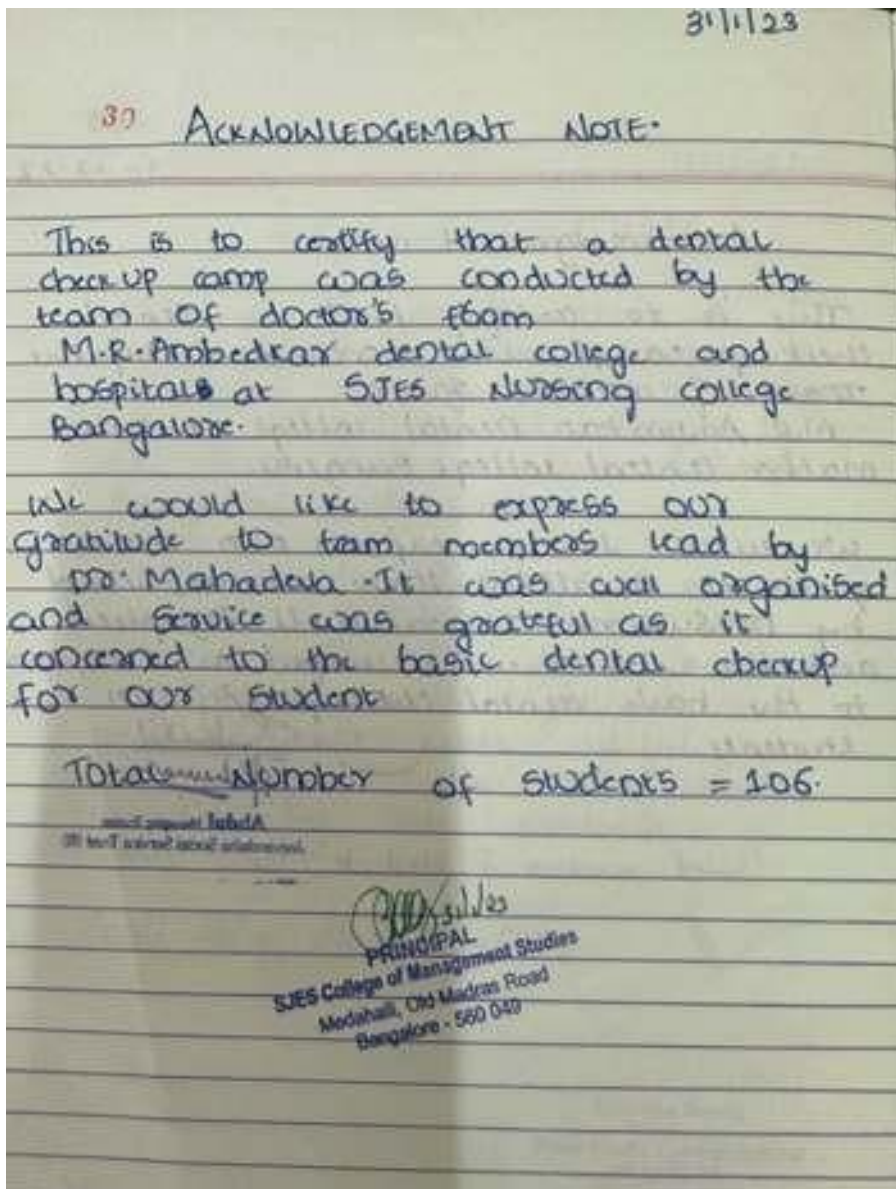 31/1/23
30 ACKNOWLEDGEMENT NOTE.
This is to certify that a dental
check up camp was conducted by the
team of doctor's from
M.R. Ambedkar dental college and
hospitals at SJES Nursing college
Bangalore.
We would like to express our
gratitude to team members lead by
Dr. Mahadeva. It was well organised
and Service was grateful as it
concerned to the basic dental checkup
for our student
Total Number of students = 106.
31/1/23
PRINCIPAL
SJES College of Management Studies
Medahalli, Old Madras Road
Bangalore - 560 049